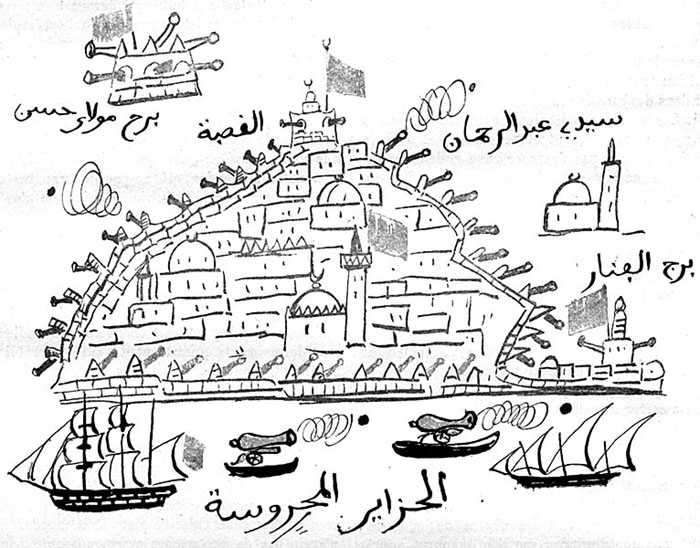 برج مولاي حسن
القصبة
سيدي عبد الرحمان
برج الفنار
الجزاير المحروسة